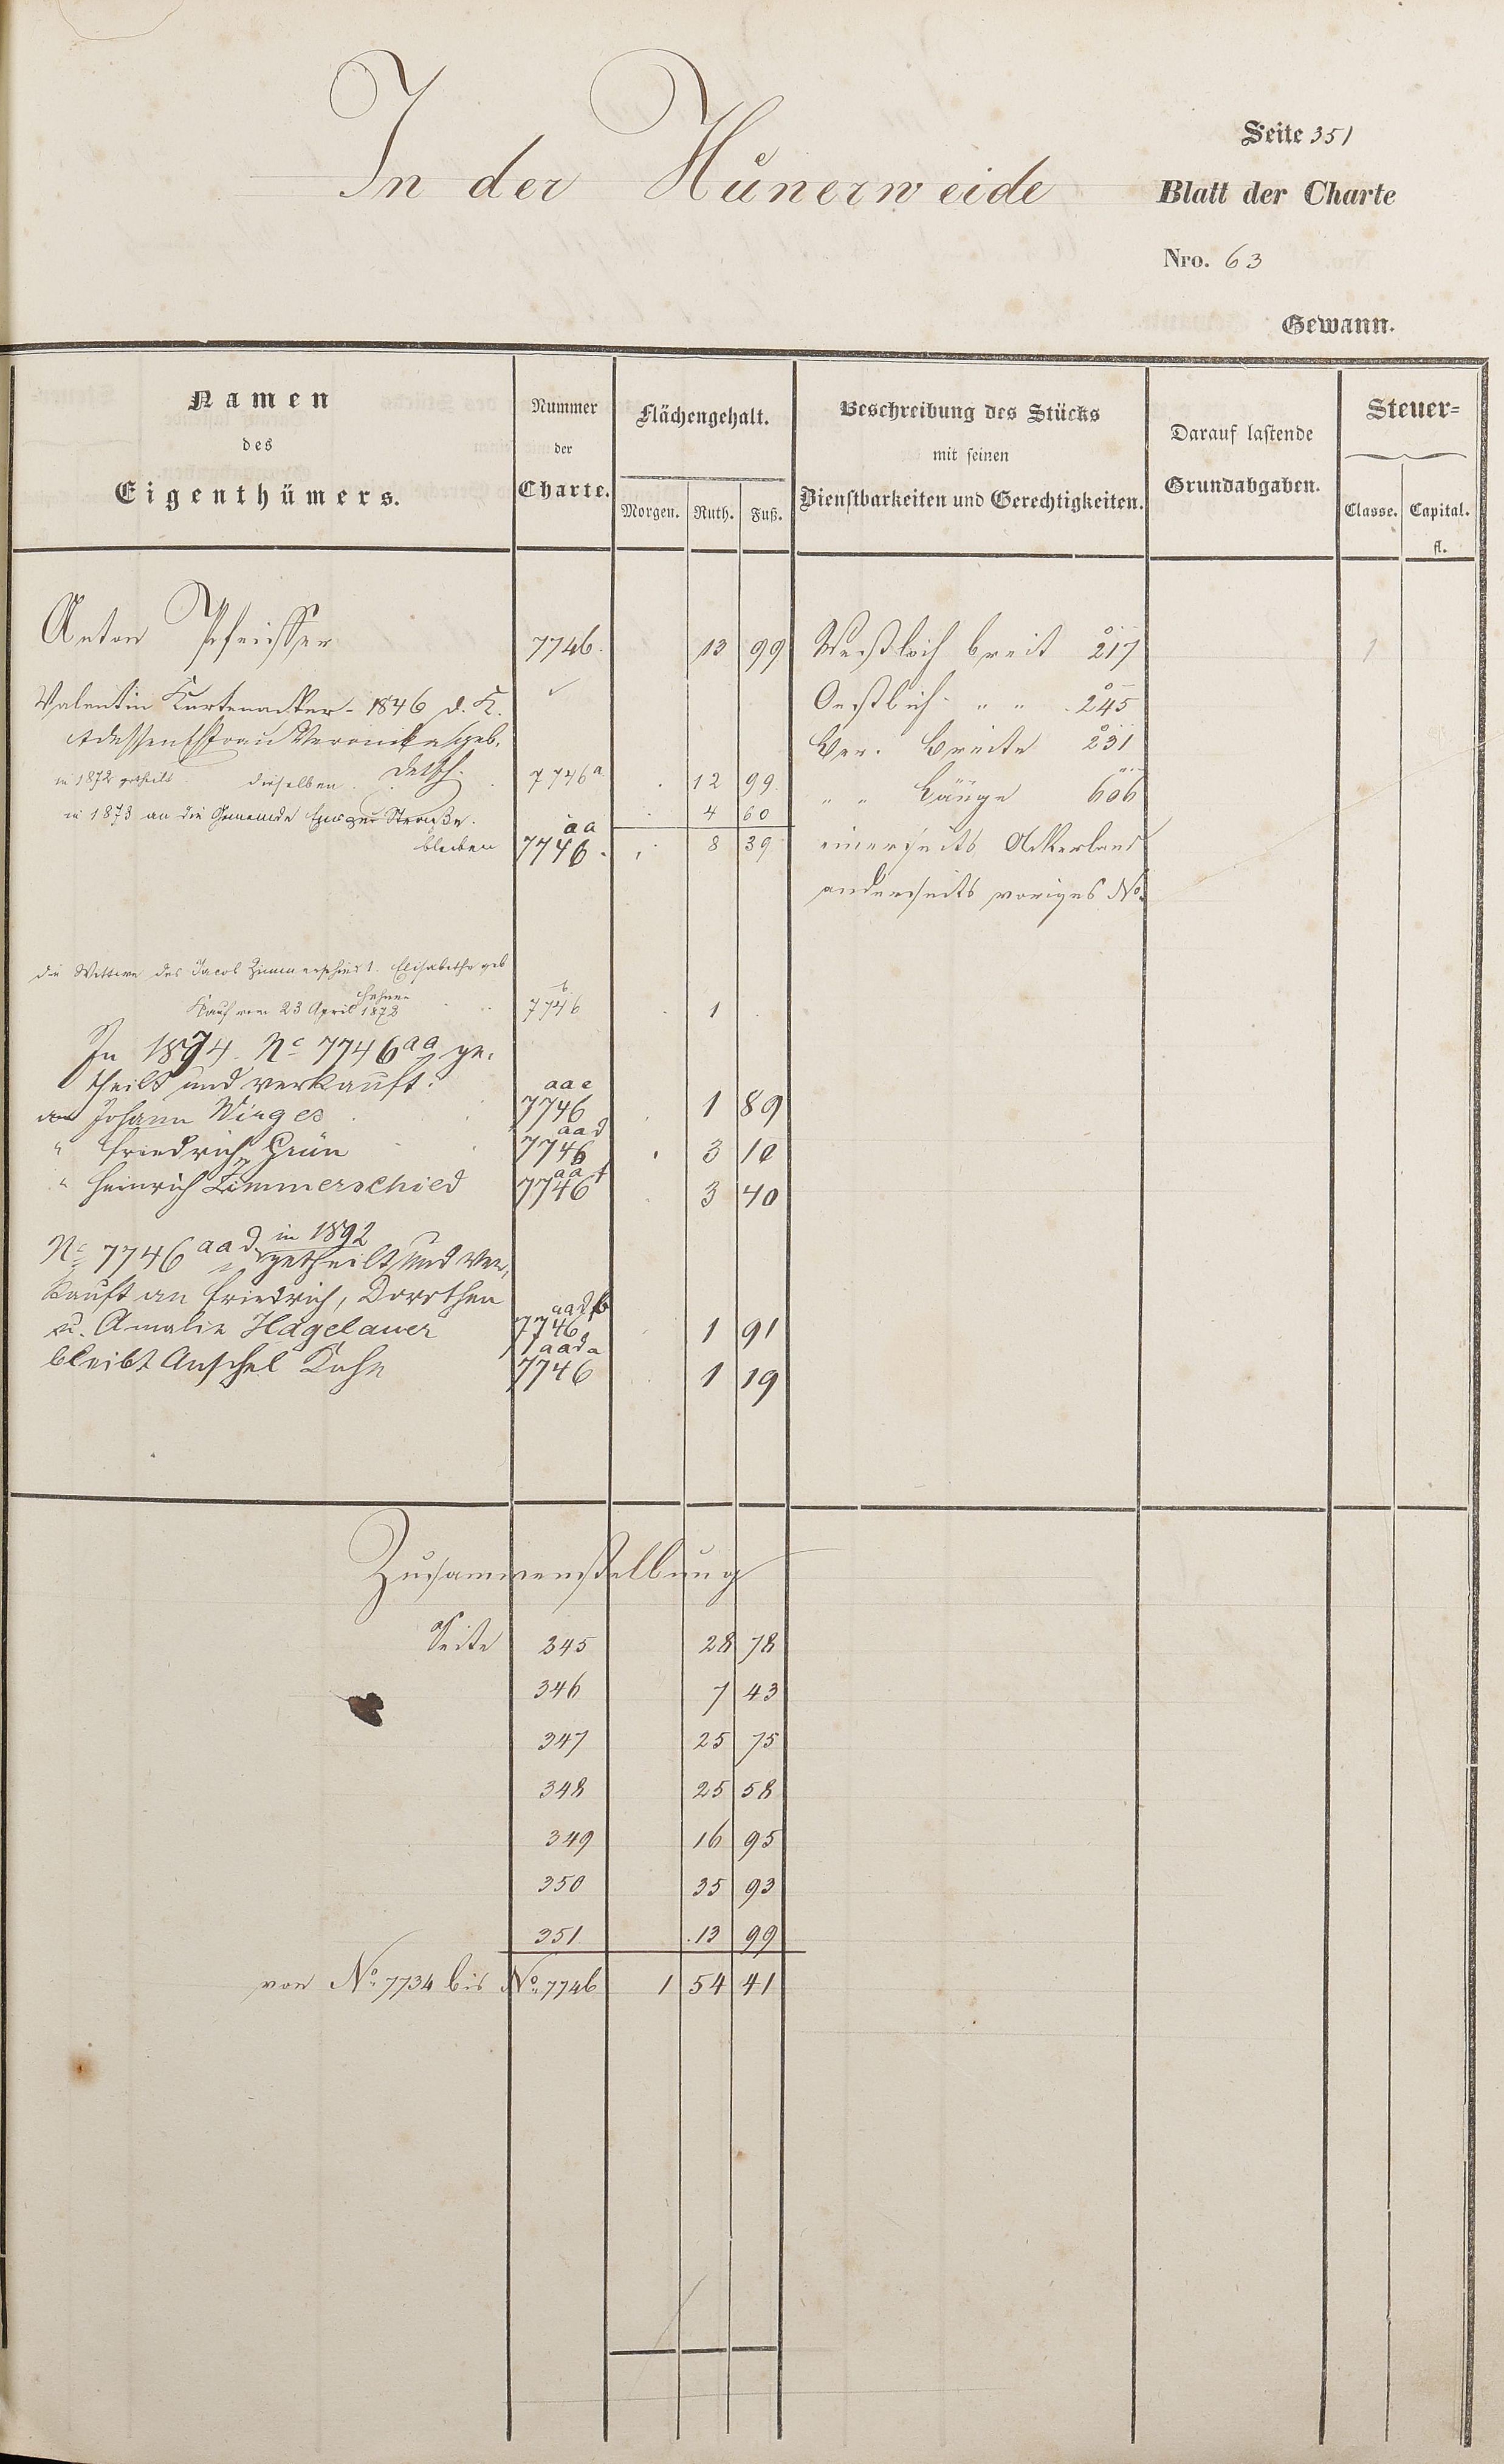 In der Hünerweide
Seite 351
Blatt der Charte
Nro. 63
Gewann.
Namen
des
Eigenthümers.
Nummer
der
Charte.
Flächengehalt.
Morgen. Ruth. Fuß.
Beschreibung des Stücks
mit seinen
Dienstbarkeiten und Gerechtigkeiten.
Darauf lastende
Grundabgaben.
Steuer=
Classe. Capital.
fl.
Anton Pfeiffer 7746. 13 99 Westlich breit 217 1
Valentin Kurtenacker 1846 d. K. Oestlich " " 245
dessen Ehefrau Veronika geb. Ver. Breite 231
in 1872 getheilt dieselben Detsch. 7746a 12 99 " " Länge 606
in 1873 an die Gemeinde zur Straße. 4 60
bleiben 7746aa 8 39 einerseits Ackerland
anderseits voriges No.
die Wittwe des Jacob Zimmerschied 1. Elisabetha geb
Kauf vom 23 April 1872 7746b 1
In 1874 No 7746aa ge-
theilt und verkauft:
an Johann Winges 7746aae 1 89
" Friedrich Grün 7746aad 3 10
" Heinrich Zimmerschied 7746aaf 3 40
No 7746aad in 1892 getheilt und ver-
kauft an Friedrich, Dorothea
u. Amalie Hagelauer 7746aadb 1 91
bleibt Anschel Kahn 7746aada 1 19
Zusammenstellung
Seite 345 28 78
346 7 43
347 25 75
348 25 58
349 16 95
350 35 93
351 13 99
von No. 7734 bis No. 7746 1 54 41